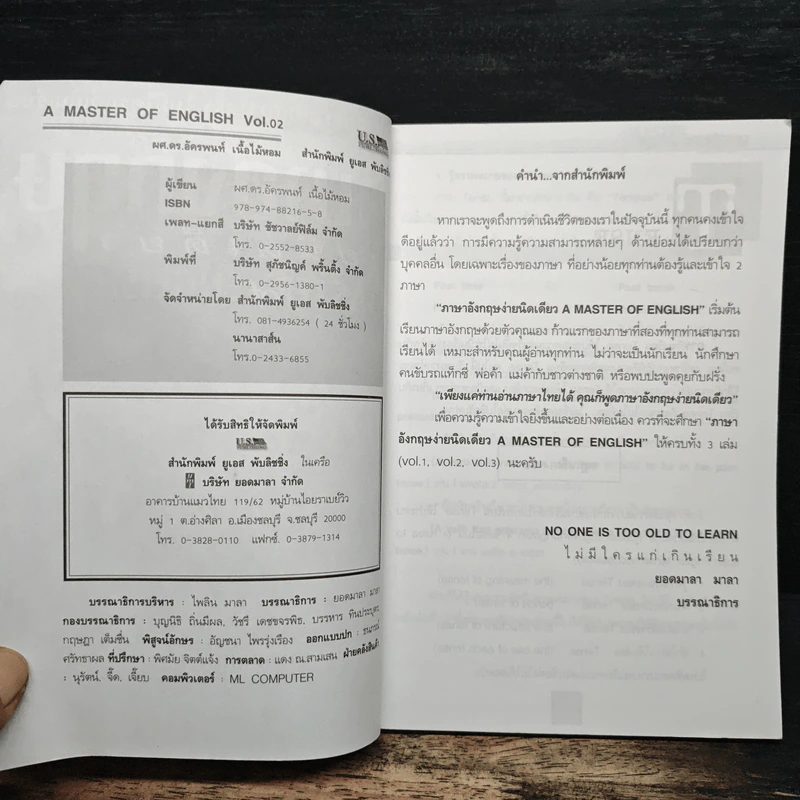 A MASTER OF ENGLISH Vol.02
ผศ.ดร.อัครพนท์ เนื้อไม้หอม สำนักพิมพ์ ยูเอส พับลิชชิ่ง
U.S.
ผู้เขียน ผศ.ดร.อัครพนท์ เนื้อไม้หอม
ISBN 978-974-88216-5-8
เพลท-แยกสี บริษัท ชัชวาลย์ฟิล์ม จำกัด
โทร. 0-2552-8533
พิมพ์ที่ บริษัท สุภัชนิญค์ พริ้นติ้ง จำกัด
โทร. 0-2956-1380-1
จัดจำหน่ายโดย สำนักพิมพ์ ยูเอส พับลิชชิ่ง
โทร. 081-4936254 ( 24 ชั่วโมง )
นานาสาส์น
โทร.0-2433-6855
ได้รับสิทธิให้จัดพิมพ์
U.S.
สำนักพิมพ์ ยูเอส พับลิชชิ่ง ในเครือ
บริษัท ยอดมาลา จำกัด
อาคารบ้านแมวไทย 119/62 หมู่บ้านไอยราเบย์วิว
หมู่ 1 ต.อ่างศิลา อ.เมืองชลบุรี จ.ชลบุรี 20000
โทร. 0-3828-0110 แฟกซ์. 0-3879-1314
บรรณาธิการบริหาร : ไพลิน มาลา บรรณาธิการ : ยอดมาลา มาลา
กองบรรณาธิการ : บุญนิธิ ถิ่นมีผล, วัชรี เดชขจรพิช, บรรหาร ทินประบุตร,
กฤษฎา เต็มชื่น พิสูจน์อักษร : อัญชนา ไพรรุ่งเรือง ออกแบบปก : ธนภรณ์
ศรัทธาผล ที่ปรึกษา : พิศมัย จิตต์แจ้ง การตลาด : แดง ณ.สามเสน ฝ่ายคลังสินค้า
: นุรัตน์, จิ๊ด, เจี๊ยบ คอมพิวเตอร์ : ML COMPUTER
คำนำ...จากสำนักพิมพ์
หากเราจะพูดถึงการดำเนินชีวิตของเราในปัจจุบันนี้ ทุกคนคงเข้าใจ
ดีอยู่แล้วว่า การมีความรู้ความสามารถหลายๆ ด้านย่อมได้เปรียบกว่า
บุคคลอื่น โดยเฉพาะเรื่องของภาษา ที่อย่างน้อยทุกท่านต้องรู้และเข้าใจ 2
ภาษา
"ภาษาอังกฤษง่ายนิดเดียว A MASTER OF ENGLISH" เริ่มต้น
เรียนภาษาอังกฤษด้วยตัวคุณเอง ก้าวแรกของภาษาที่สองที่ทุกท่านสามารถ
เรียนได้ เหมาะสำหรับคุณผู้อ่านทุกท่าน ไม่ว่าจะเป็นนักเรียน นักศึกษา
คนขับรถแท็กซี่ พ่อค้า แม่ค้ากับชาวต่างชาติ หรือพบปะพูดคุยกับฝรั่ง
"เพียงแค่ท่านอ่านภาษาไทยได้ คุณก็พูดภาษาอังกฤษง่ายนิดเดียว"
เพื่อความรู้ความเข้าใจยิ่งขึ้นและอย่างต่อเนื่อง ควรที่จะศึกษา "ภาษา
อังกฤษง่ายนิดเดียว A MASTER OF ENGLISH" ให้ครบทั้ง 3 เล่ม
(vol.1, vol.2, vol.3) นะครับ
NO ONE IS TOO OLD TO LEARN
ไม่มีใครแก่เกินเรียน
ยอดมาลา มาลา
บรรณาธิการ